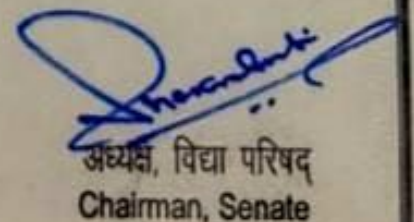 अध्यक्ष, विद्या परिषद्
Chairman, Senate